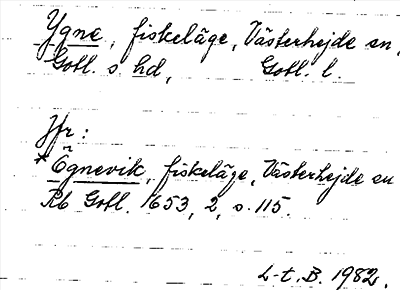 Ygne, fiskeläge, Västerhejde sn,
Gotl. s. hd, Gotl. l.
Jfr:
*Ögnevik, fiskeläge, Västerhejde sn
Rb Gotl. 1653, 2, s. 115.
L-t. B. 1982.